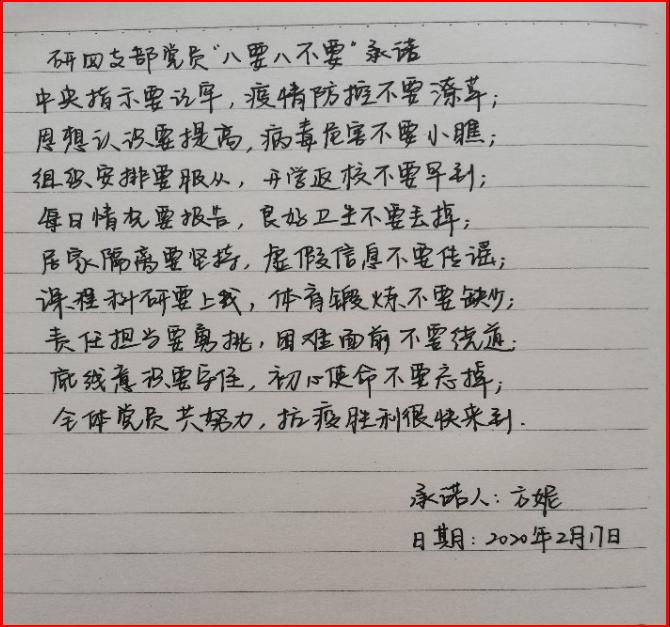 研四支部党员“八要八不要”承诺
中央指示要记牢，疫情防控不要潦草；
思想认识要提高，病毒危害不要小瞧；
组织安排要服从，开学返校不要早到；
每日情况要报告，良好卫生不要丢掉；
居家隔离要坚持，虚假信息不要传谣；
课程科研要上线，体育锻炼不要缺少；
责任担当要勇挑，困难面前不要绕道；
底线意识要守住，初心使命不要忘掉；
全体党员共努力，抗疫胜利很快来到.
承诺人：方妮
日期：2020年2月17日